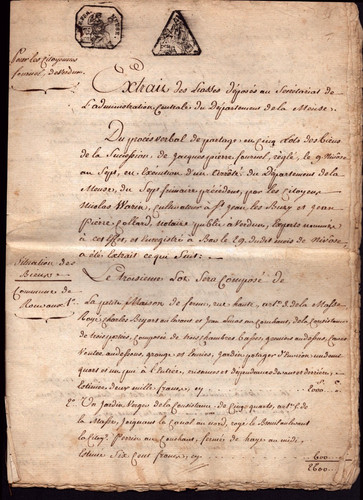 Pour les Citoyennes
fournel, de Verdun.
Extrait des Liasses déposés au Secrétariat de
L'administration Centrale du Département de la Meuse.
Du procès verbal de partage en Cinq Lots des biens
de la Succession de Jacques pierre fournel, réglé le 9 Nivose
an Sept, en Execution d'un Arrêté du Département de la
Meuse, du Sept frimaire précédent, par les Citoyens
Nicolas Warin, cultivateur à St jean les Buzy et jean
Pierre Collard, notaire public à Verdun, Experts nommés
à cet Effet, et Enregistré à Bar le 29 dudit mois de Nivose
a été Extrait ce qui Suit:
Situation des
Biens
Commune de
Rouvaux
Le troisieme Lot Sera Composé de
1.° La petite Maison de ferme, rue haute, art. de la Masse
Royé Charles au levant et Jean au Couchant, de la Consistance
de trois composée de trois chambres basses, greniers au dessus, Caves
Voutés au dessous, grange et Ecuries, jardin potager d'Environ un demi
quart et un pied à l'Entrée, aisances et dépendances devant et derriere,
Estimée deux mille francs, cy 2000
2.° Un Jardin Verger de la Consistance de Cinq quarts, art. de
la Masse, joignant le Canal au nord, royé le au levant
le Citoy. Perrin au Couchant, fermé de haye au midi,
Estimé Six Cent francs, cy 600
2600